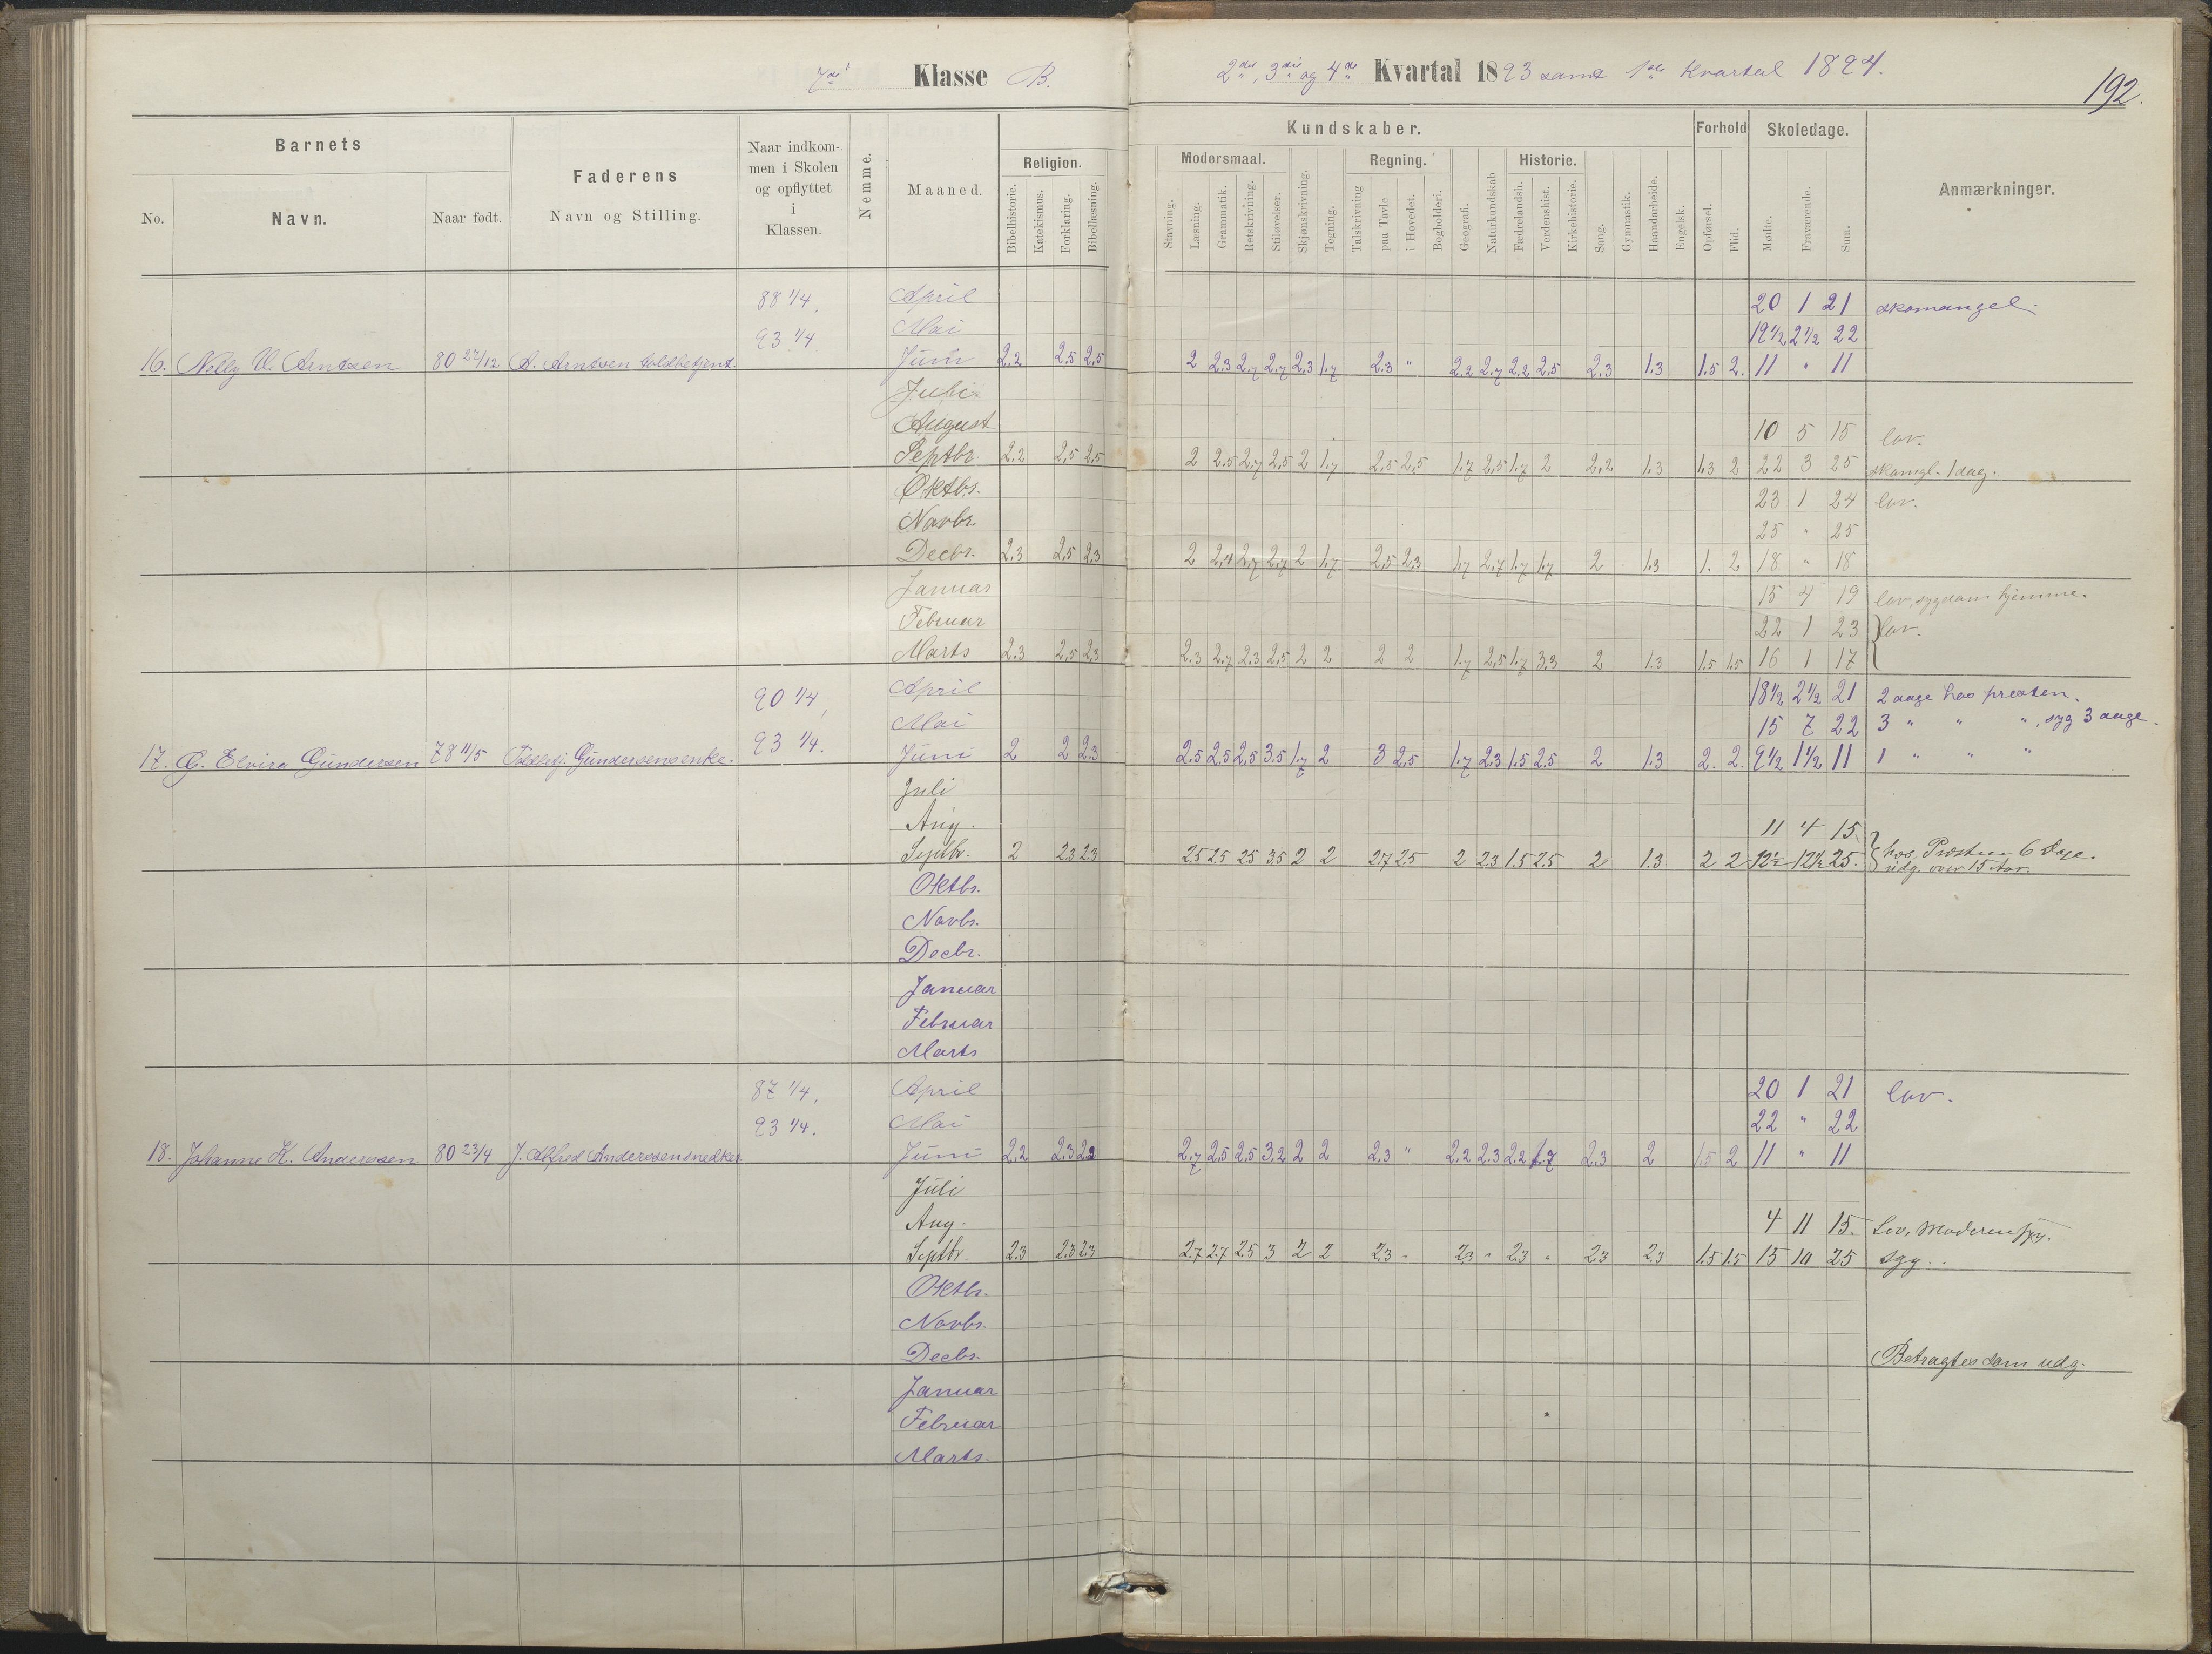 7de Klasse B.
2det, 3die og 4de Kvartal 1893 samt 1ste Kvartal 1894.
192.
Barnets
Faderens
Naar indkommen i Skolen og opflyttet i Klassen.
Nemme.
Maaned.
Kundskaber.
Forhold
Skoledage.
Anmærkninger.
No.
Navn.
Naar født.
Navn og Stilling.
Religion.
Modersmaal.
Regning.
Historie.
Bibelhistorie. Katekismus. Forklaring. Bibellæsning. Stavning. Læsning. Grammatik. Retskrivning. Stiløvelser. Skjønskrivning. Tegning. Talskrivning paa Tavle i Hovedet. Bogholderi. Geografi. Naturkundskab Fædrelandsh. Verdenshist. Kirkehistorie. Sang. Gymnastik. Haandarbeide. Engelsk. Opførsel. Flid. Møde. Fraværende. Sum.
88 1/4, April 20 1 21 skomangel.
93 1/4 Mai 19 1/2 2 1/2 22
16. Nelly V. Arntsen 80 27/12 A. Arntsen toldbetjent. Juni 2.2 2.5 2.5 2 2.3 2.7 2.7 2.3 1.7 2.3 " 2.2 2.7 2.2 2.5 2.3 1.3 1.5 2. 11 " 11
Juli
August 10 5 15 lov.
Septbr. 2.2 2.5 2.5 2 2.5 2.7 2.5 2 1.7 2.5 2.5 1.7 2.5 1.7 2 2.2 1.3 1.3 2 22 3 25 skomgl. 1 dag.
Oktbr. 23 1 24 lov.
Novbr. 25 " 25
Decbr. 2.3 2.5 2.3 2 2.4 2.7 2.7 2 1.7 2.5 2.3 1.7 2.7 1.7 1.7 2 1.3 1. 2 18 " 18
Januar 15 4 19 lov, sygdom hjemme.
Februar 22 1 23 lov.
Marts 2.3 2.5 2.3 2.3 2.7 2.3 2.5 2 2 2 2 1.7 2.5 1.7 3.3 2 1.3 1.5 1.5 16 1 17
90 1/4, April 18 1/2 2 1/2 21 2 dage hos presten.
93 1/4. Mai 15 7 22 3 " " ", syg 3 dage.
17. G. Elvira Gundersen 78 11/5 Toldbtj. Gundersens enke. Juni 2 2 2.3 2.5 2.5 2.5 3.5 1.7 2 3 2.5 1.7 2.3 1.5 2.5 2 1.3 2. 2. 9 1/2 1 1/2 11 1 " " "
Juli
Aug. 11 4 15
Septbr. 2 2.3 2.3 2.5 2.5 2.5 3.5 2 2 2.7 2.5 2 2.3 1.5 2.5 2 1.3 2 2 12 1/2 12 1/2 25. hos Præsten 6 Dage.
udg. over 15 Aar.
Oktbr.
Novbr.
Decbr.
Januar
Februar
Marts
87 1/4, April 20 1 21 lov.
93 1/4. Mai 22 " 22
18. Johanne K. Anderssen 80 23/4 J. Alfred Anderssen snedker. Juni 2.2 2.3 2.2 2.7 2.5 2.5 3.2 2 2 2.3 " 2.2 2.3 2.2 1.7 2.3 2 1.5 2 11 " 11
Juli
Aug. 4 11 15. Lov, Moderen syg.
Septbr. 2.3 2.3 2.3 2.7 2.7 2.5 3 2 2 2.3 " 2.3 " 2.3 " 2.3 2.3 1.5 1.5 15 10 25 syg.
Oktbr.
Novbr.
Decbr. Betragtes som udg.
Januar
Februar
Marts.